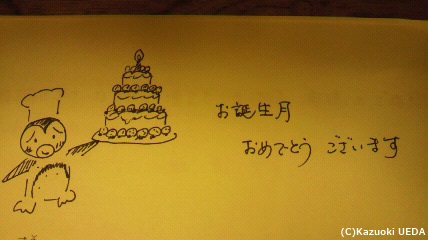 お誕生月
おめでとう ございます
(C)Kazuoki UEDA